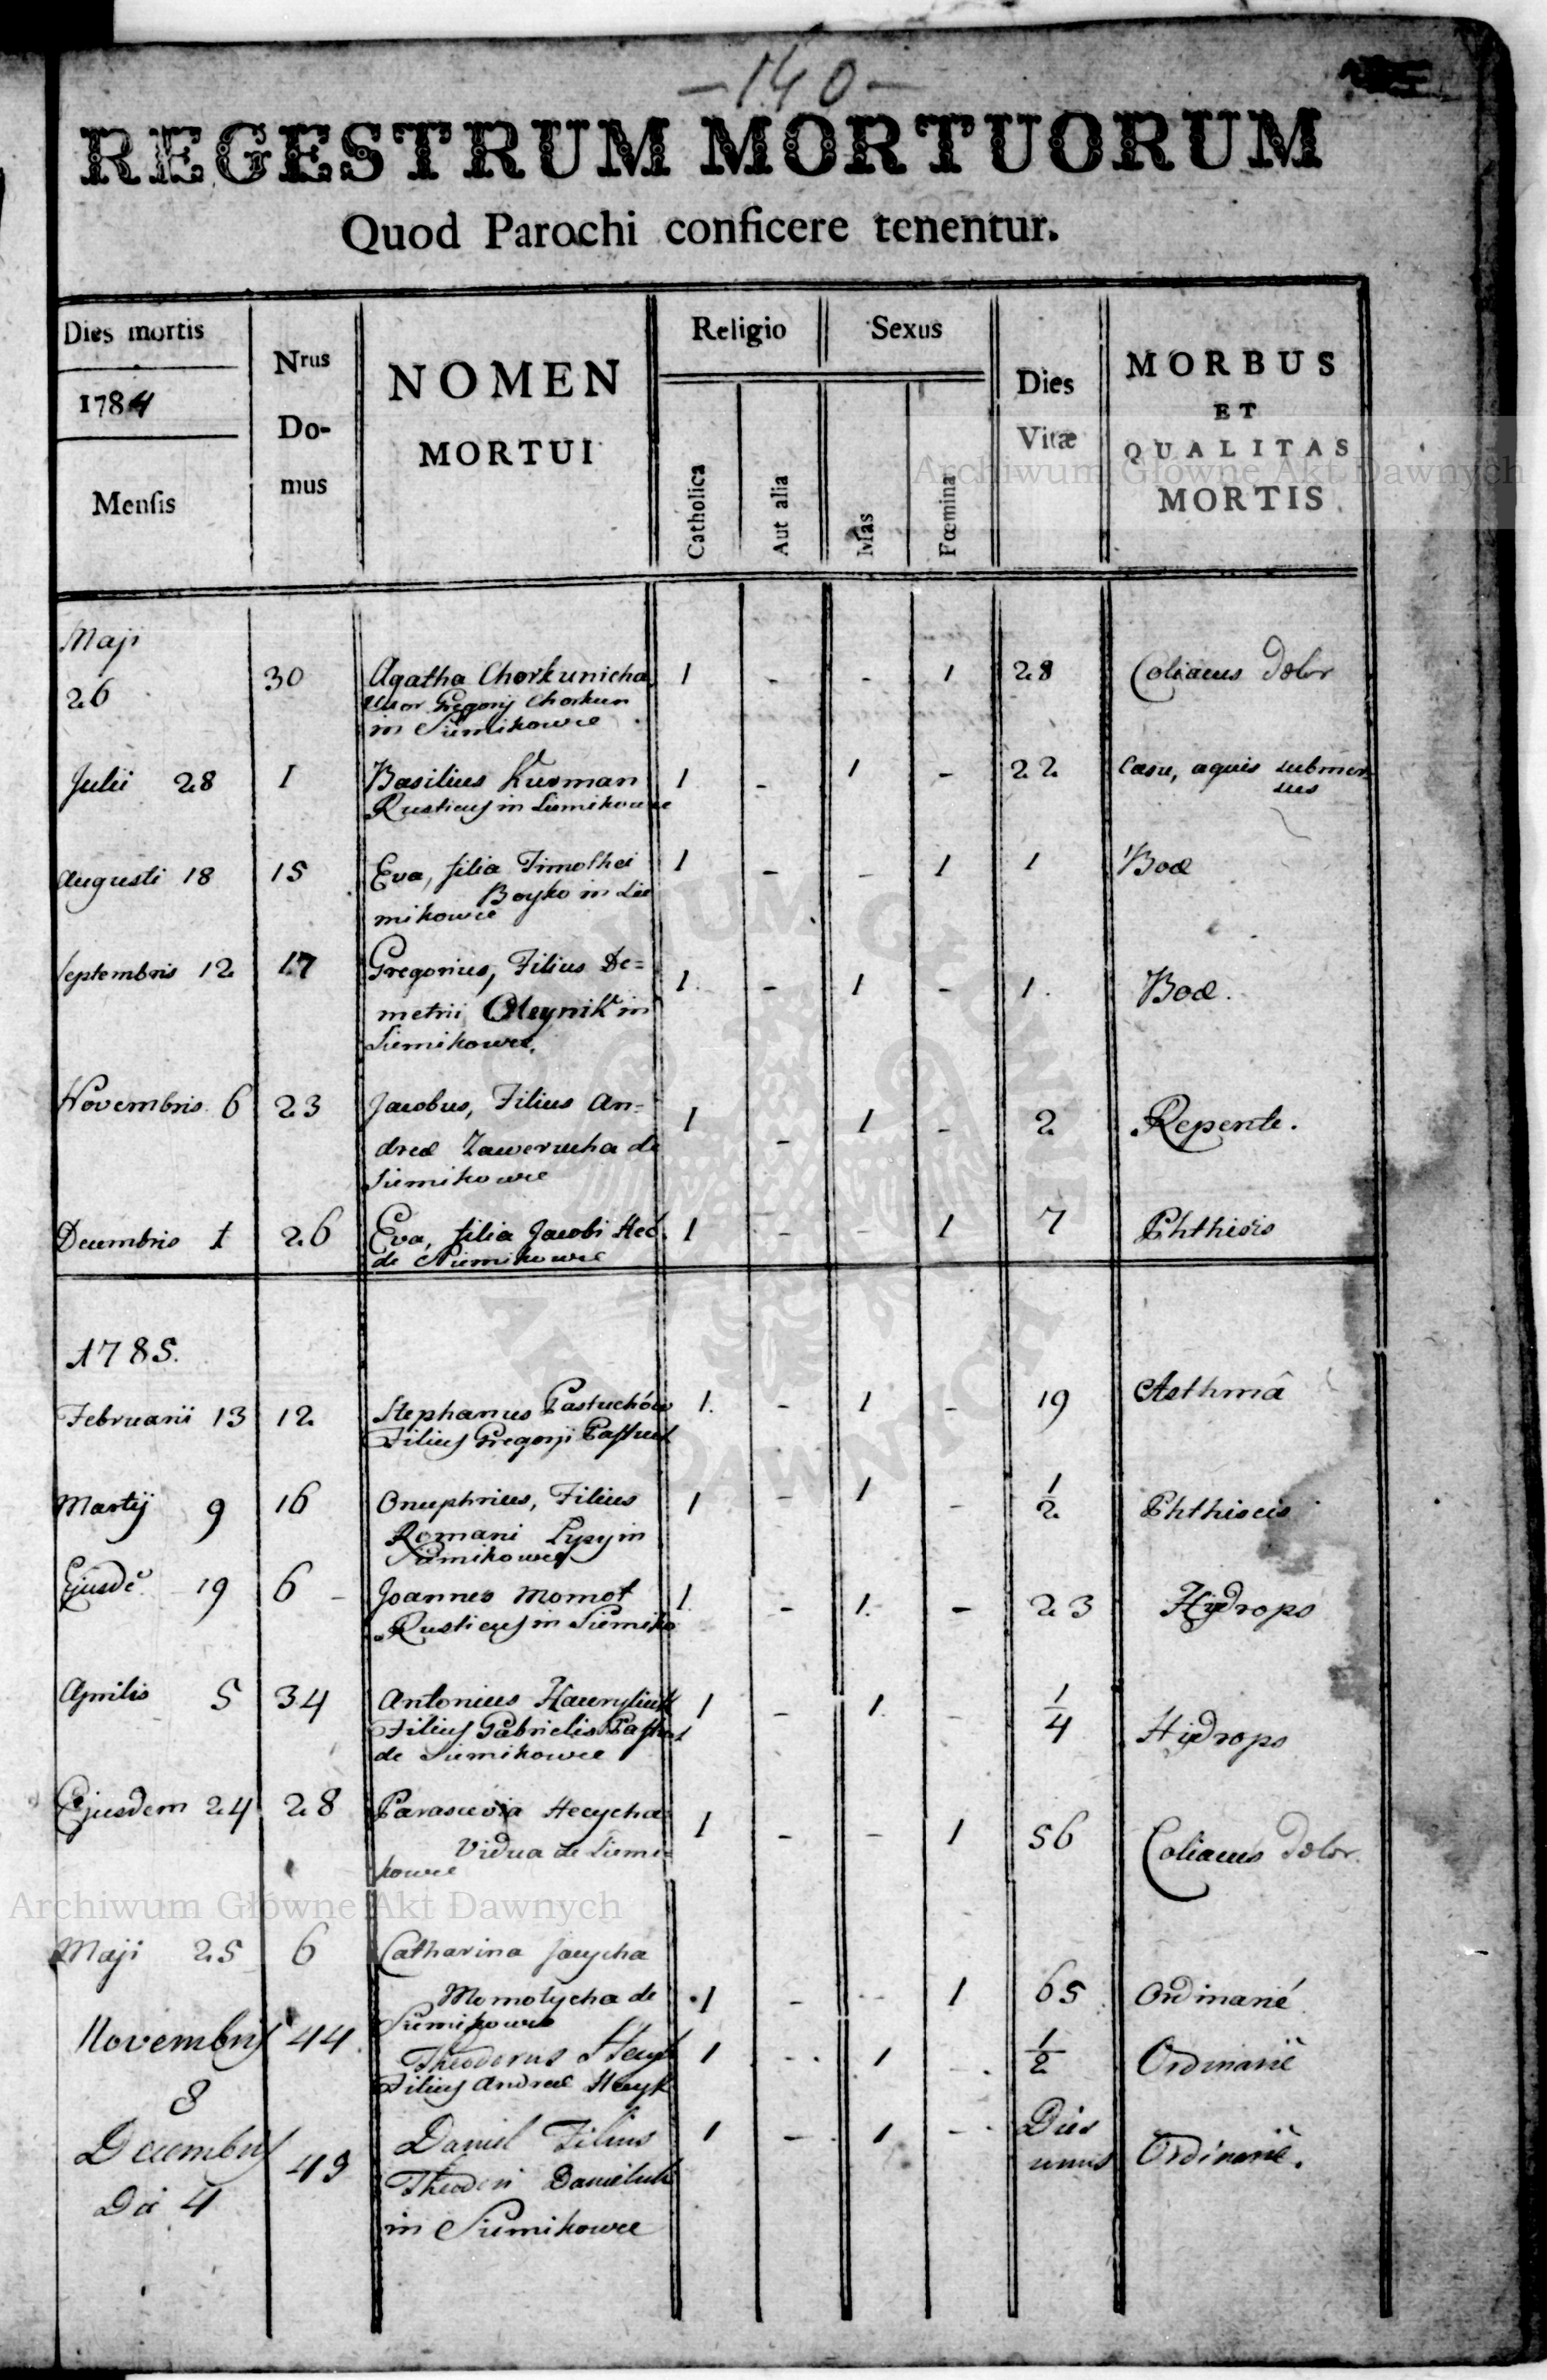 -140-
REGESTRUM MORTUORUM
Quod Parochi conficere tenentur.
Dies mortis
1784
Mensis
Nrus
Do-
mus
NOMEN
MORTUI
Religio
Catholica
Aut alia
Sexus
Mas
Fœmina
Dies
Vitæ
MORBUS
ET
QUALITAS
MORTIS
Archiwum Główne Akt Dawnych
Maji
26 30 Agatha Chorkunicha 1 - - 1 28 Coliacus dolor
Uxor Gregorij Chorkun
in Siemikowce
Julii 28 1 Basilius Kusman 1 - 1 - 22 Casu, aquis submer
Rusticus in Siemikowce sus
Augusti 18 15 Eva, filia Timothei 1 - - 1 1 Boæ
Boyko in Sie
mikowce
Septembris 12 17 Gregorius, Filius De= 1 - 1 - 1. Boæ.
metrii Oleynik in
Siemikowce.
Novembris 6 23 Jacobus, Filius An= 1 - 1 - 2 Repente.
dreæ Zawerucha de
Siemikowce
Decembris 1 26 Eva, filia Jacobi Hec. 1 - - 1 7 Phthisis
de Siemikowce
1785.
Februarii 13 12 Stephanus Pastuchów 1. - 1 - 19 Asthmâ
Filius Gregorji Pastuch
Martij 9 16 Onuphrius, Filius 1 - 1 - 1/2 Phthiscis
Romani Lysy in
Siemikowce
Ejusdē 19 6 - Joannes Momot 1. - 1. - 23 Hydrops
Rusticus in Siemiko
Aprilis 5 34 Antonius Hawryliuk 1 - 1. - 1/4 Hidrops
Filius Gabrielis
de Siemikowce
Ejusdem 24 28 Parascevia Hecycha 1 - - 1 56 Coliacus dolor.
Vidua de Siemi=
kowce
Archiwum Główne Akt Dawnych
Maji 25 6 Catharina Jacycha
Momotycha de 1 - - 1 65 Ordinarié
Siemikowce
Novembris 44 Theodorus 1 - 1 - 1/2 Ordinariè
8 Filius Andreæ
Decembris 49 Daniel Filius 1 - 1 - Dies Ordinariè.
Die 4 Theodori Danieluk unus
in Siemikowce
ARCHIWUM GŁÓWNE
AKT DAWNYCH